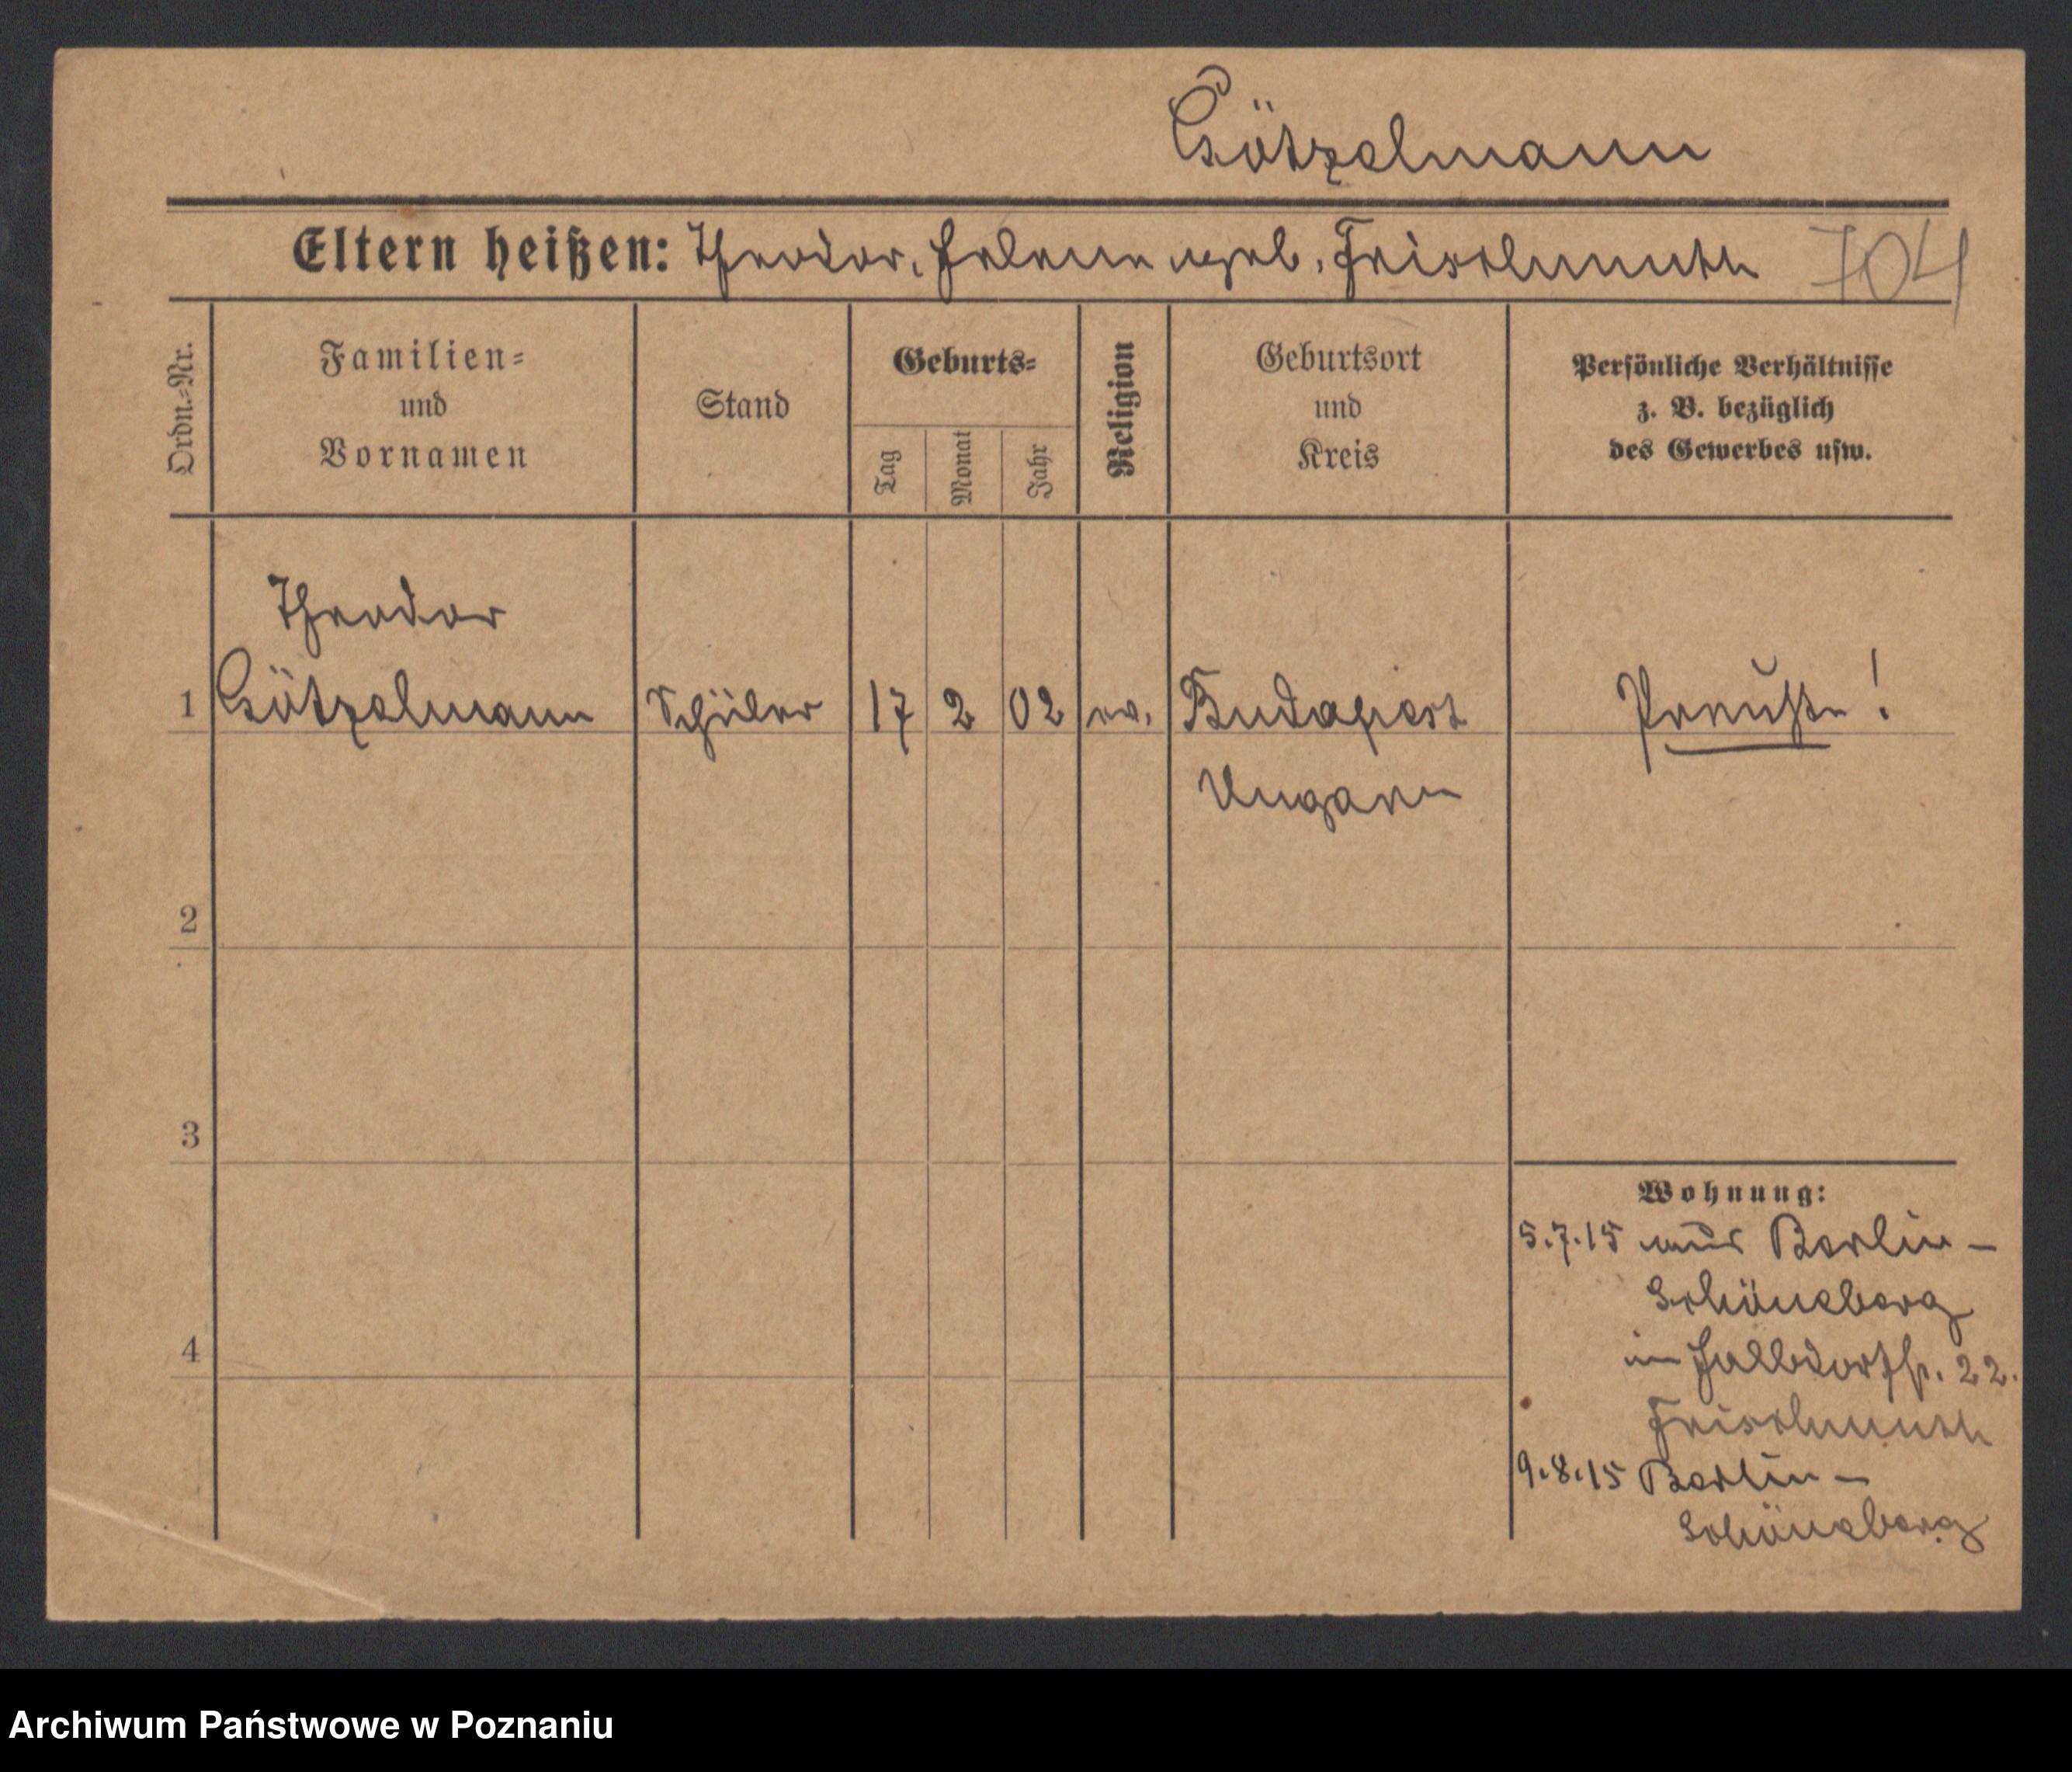 Götzelmann
Eltern heißen: Theodor, Helene geb. Frischmuth 704
Ordn.-Nr.
Familien-
und
Vornamen
Stand
Geburts-
Tag
Monat
Jahr
Religion
Geburtsort
und
Kreis
Persönliche Verhältnisse
z. B. bezüglich
des Gewerbes usw.
Theodor
1 Götzelmann Schüler 17 2 02 ev. Budapest Preuße!
Ungarn
2
3
4
Wohnung:
5.7.15 aus Berlin-
Schöneberg
22.
Frischmuth
9.8.15 Berlin-
Schöneberg
Archiwum Państwowe w Poznaniu